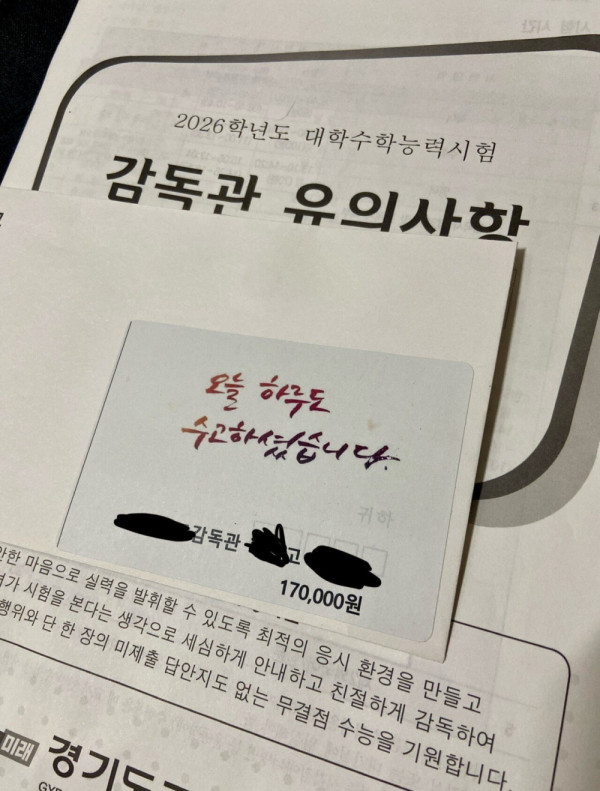 2026학년도 대학수학능력시험
감독관 유의사항
오늘 하루도
수고하셨습니다.
감독관 고
170,000원
한 마음으로 실력을 발휘할 수 있도록 최적의 응시 환경을 만들고
가 시험을 본다는 생각으로 세심하게 안내하고 친절하게 감독하여
행위와 단 한 장의 미제출 답안지도 없는 무결점 수능을 기원합니다.
미래 경기도